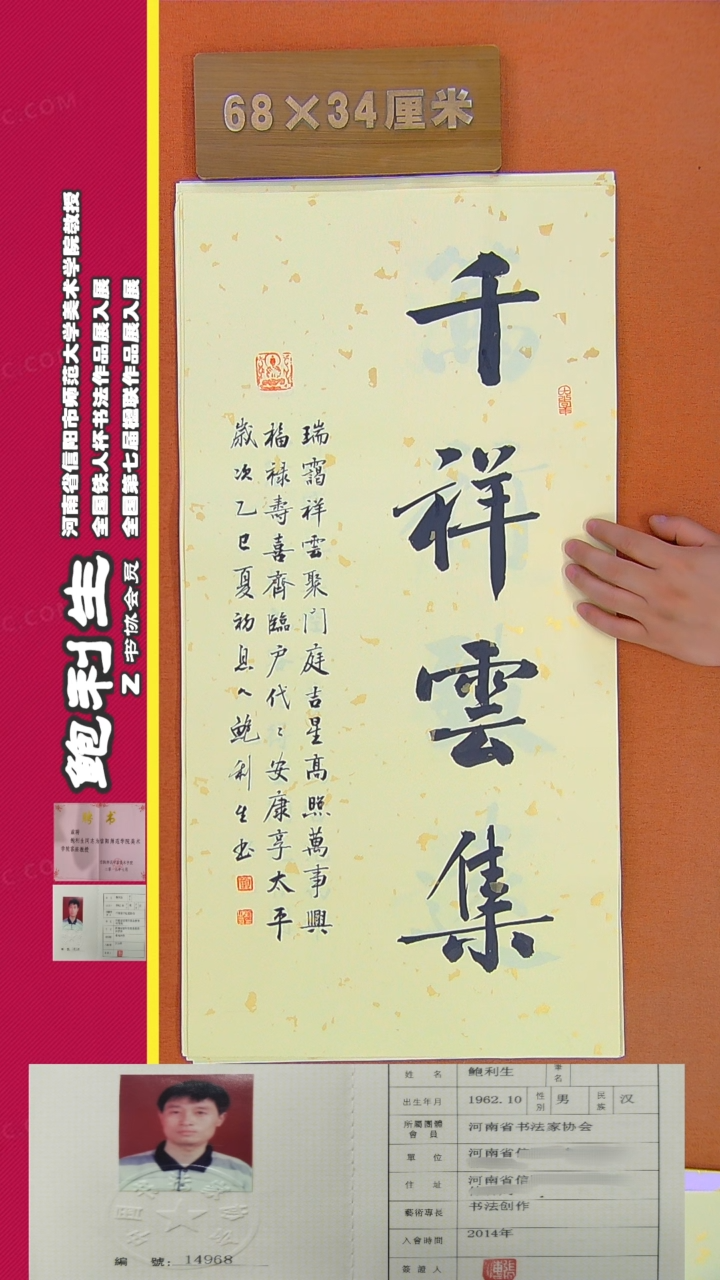 68×34厘米
千祥雲集
瑞靄祥雲聚門庭吉星高照萬事興
福禄壽喜齊臨户代〻安康享太平
歲次乙巳夏初旦〈鲍利生书
河南省信阳市师范大学美术学院教授
全国铁人杯书法作品展入展
全国第七届楹联作品展入展
鲍利生
Z 书协会员
聘书
姓 名 鲍利生 筆名
出生年月 1962.10 性別 男 民族 汉
所屬團體會員 河南省书法家协会
單 位 河南省信
住 址 河南省信
藝術專長 书法创作
入會時間 2014年
簽證人
編 號: 14968